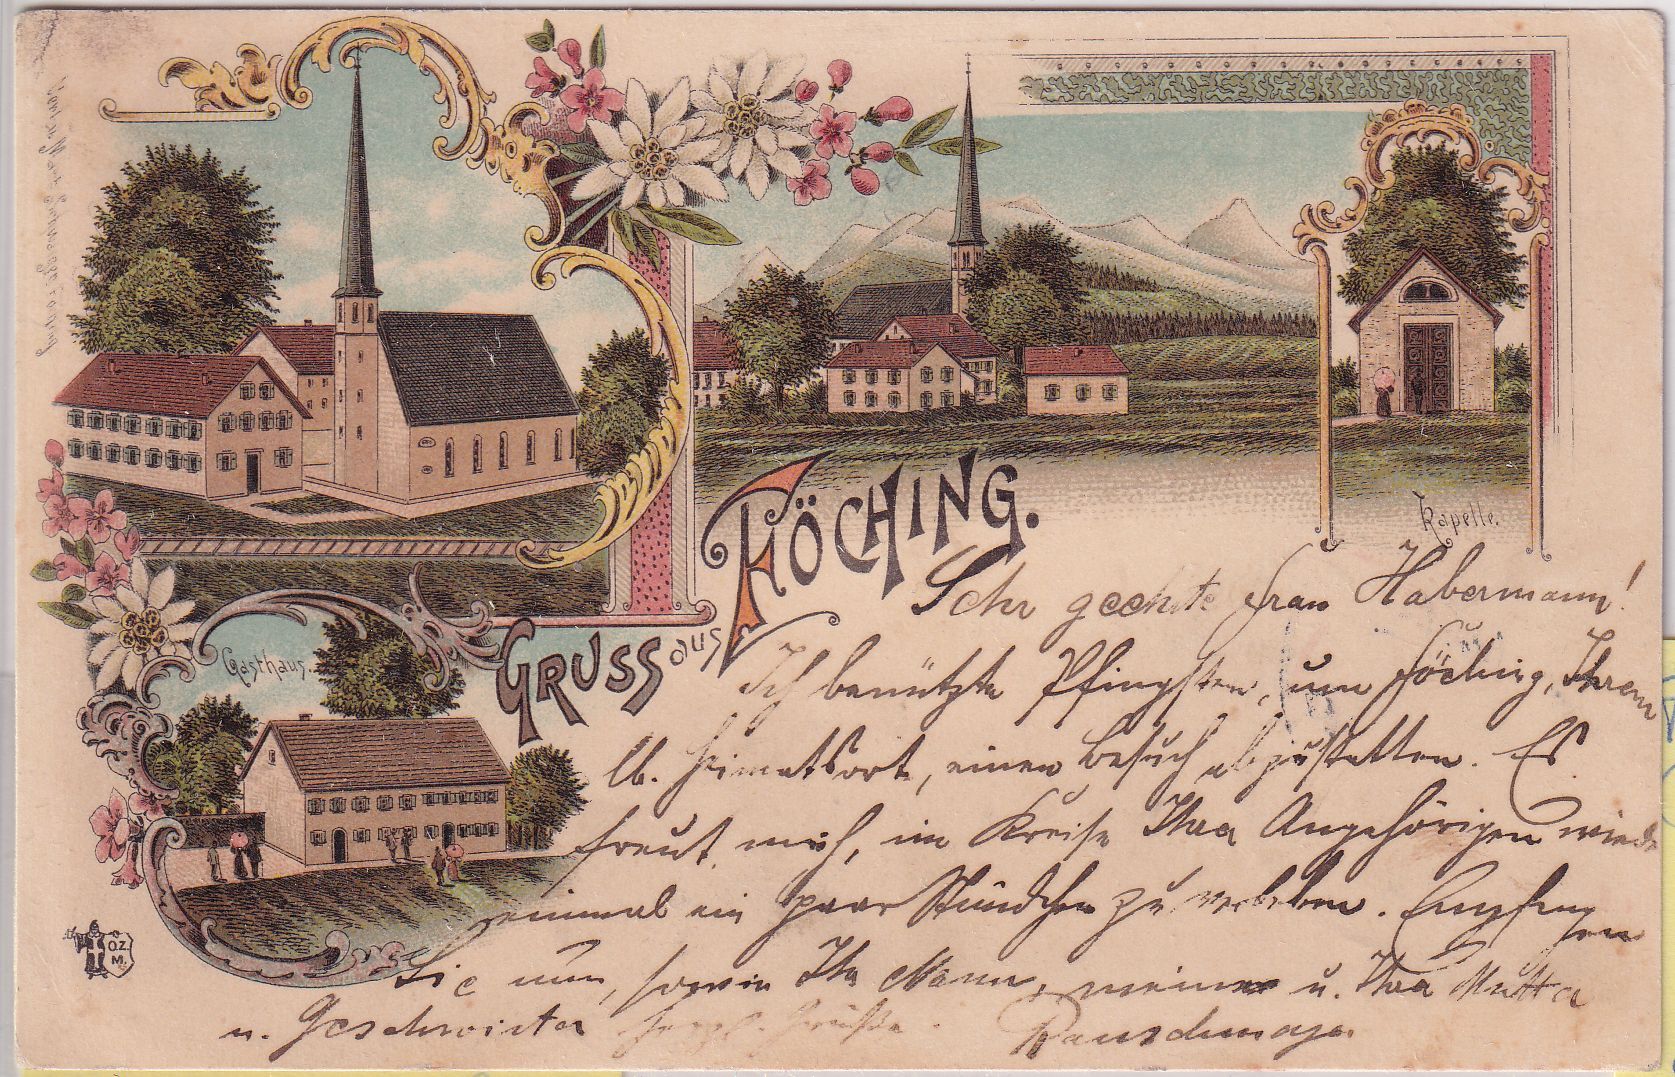 Kapelle.
Gasthaus.
GRUSS aus FÖCHING.
O.Z.
M.
Sehr geehrte Frau Habermann!
Ich benützte Pfingsten, um Föching, Ihren
lb. Heimatsort, einen Besuch abzustatten. Es
freut mich, im Kreise Ihrer Angehörigen wieder
einmal ein paar Stündchen zu verleben. Empfangen
Sie nun, sowie Ihr Mann, meine u. Ihrer Mutter
u. Geschwister herzl. Grüße.